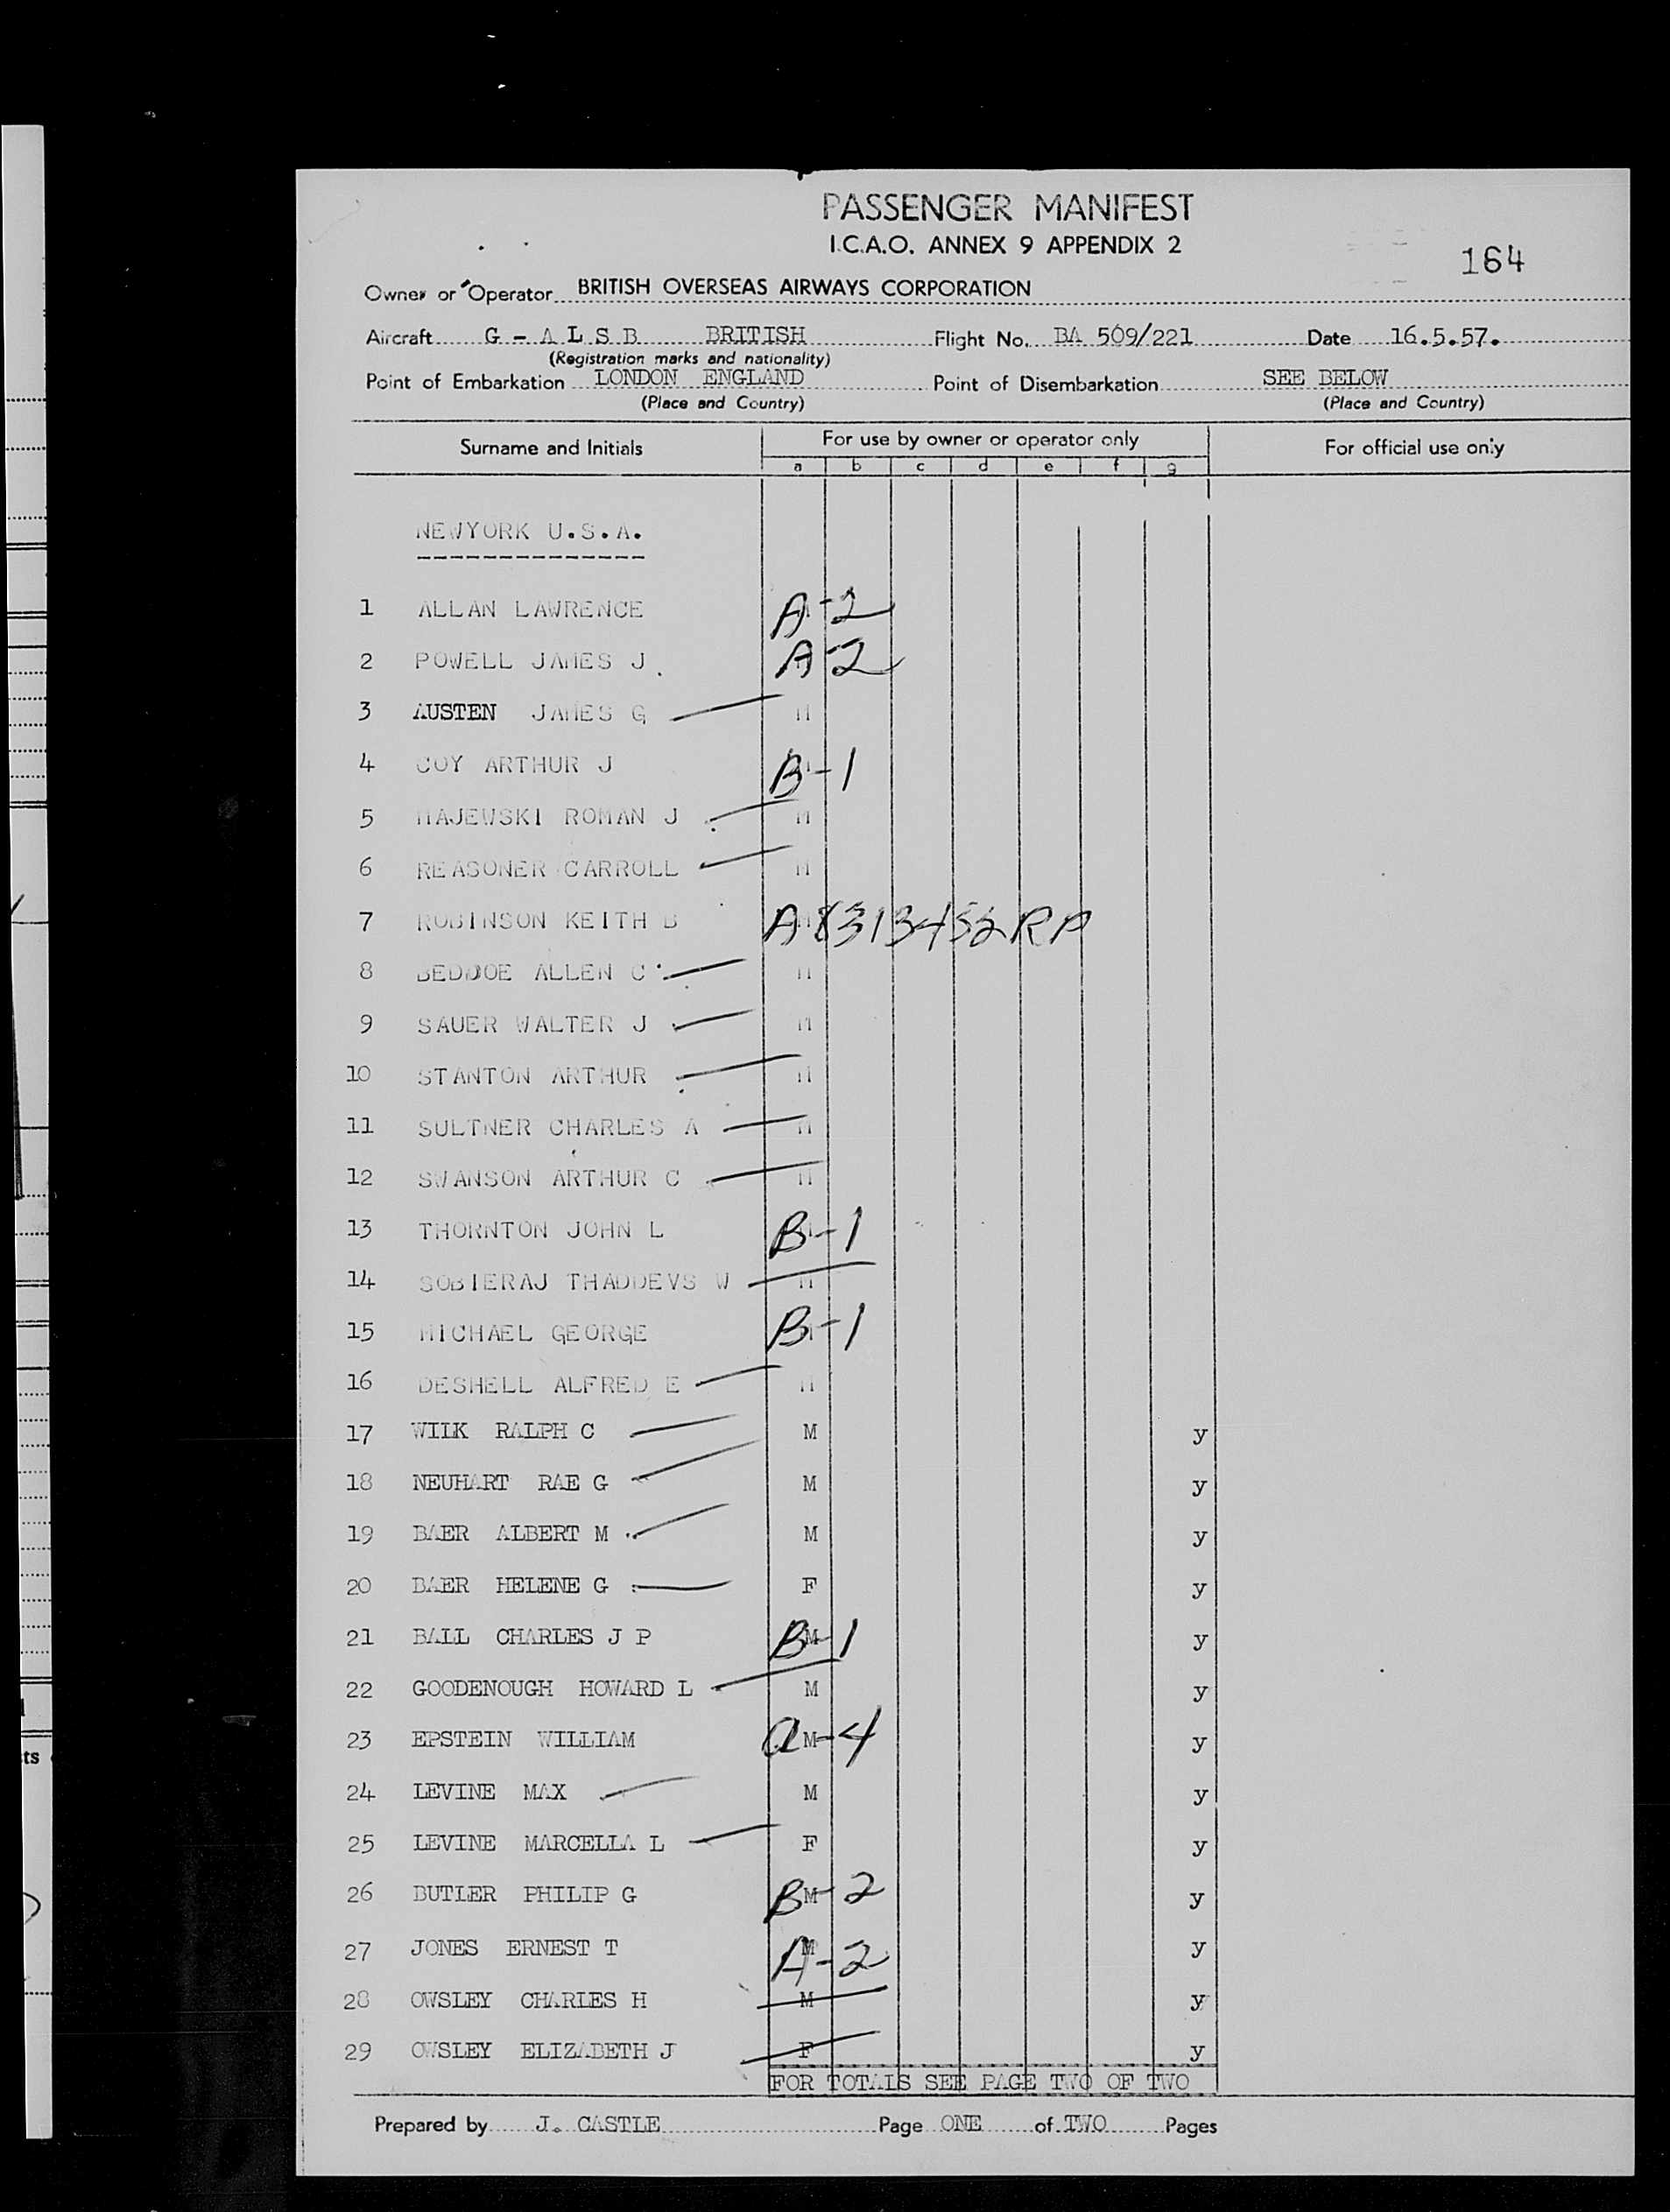 PASSENGER MANIFEST
I.C.A.O. ANNEX 9 APPENDIX 2
164
Owner or Operator BRITISH OVERSEAS AIRWAYS CORPORATION
Aircraft G - A L S B BRITISH Flight No. BA 509/221 Date 16.5.57.
(Registration marks and nationality)
Point of Embarkation LONDON ENGLAND Point of Disembarkation SEE BELOW
(Place and Country) (Place and Country)
Surname and Initials For use by owner or operator only For official use only
a b c d e f g
NEWYORK U.S.A.
1 ALLAN LAWRENCE A-2
2 POWELL JAMES J. A-2
3 AUSTEN JAMES G M
4 COY ARTHUR J B-1
5 MAJEWSKI ROMAN J M
6 REASONER CARROLL M
7 ROBINSON KEITH B A8313452RP
8 BEDDOE ALLEN C M
9 SAUER WALTER J M
10 STANTON ARTHUR M
11 SULTNER CHARLES A M
12 SWANSON ARTHUR C M
13 THORNTON JOHN L B-1
14 SOBIERAJ THADDEVS W M
15 MICHAEL GEORGE B-1
16 DESHELL ALFRED E M
17 WILK RALPH C M y
18 NEUHART RAE G M y
19 BAER ALBERT M M y
20 BAER HELENE G F y
21 BALL CHARLES J P M B-1 y
22 GOODENOUGH HOWARD L M y
23 EPSTEIN WILLIAM M a-4 y
24 LEVINE MAX M y
25 LEVINE MARCELLA L F y
26 BUTLER PHILIP G M B-2 y
27 JONES ERNEST T M A-2 y
28 OWSLEY CHARLES H M y
29 OWSLEY ELIZABETH J F y
FOR TOTALS SEE PAGE TWO OF TWO
Prepared by J. CASTLE Page ONE of TWO Pages
ts